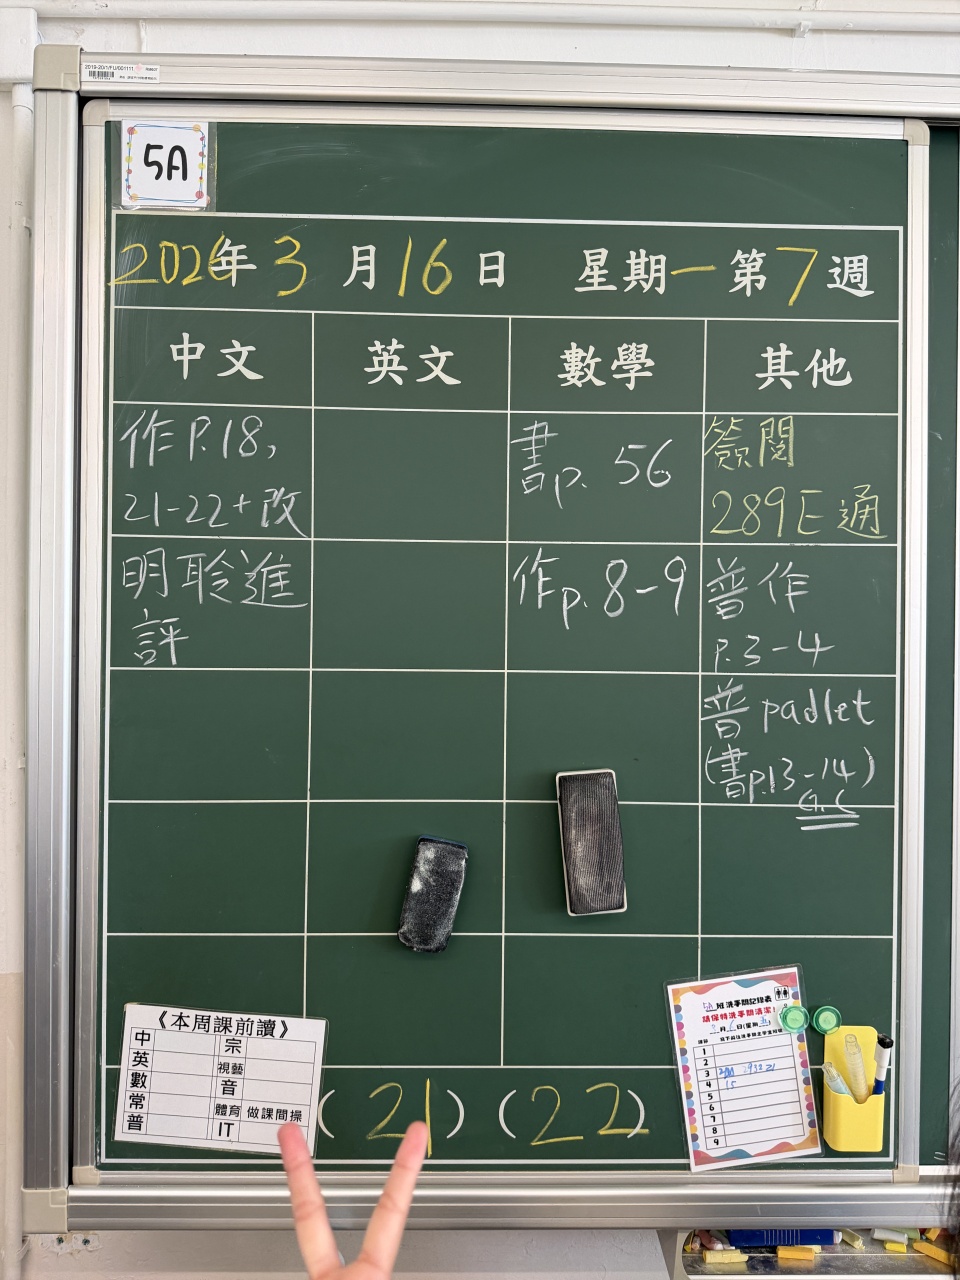 2019-20/1/FU/001111
5A
2026年3月16日 星期一第7週
中文 英文 數學 其他
作P.18,
21-22+改
書p. 56
簽閱
289E通
明聆進
評
作p. 8-9
普作
P.3-4
普padlet
(書p.13-14)
G.C
《本周課前讀》
中 宗
英 視藝
數 音
常 體育 做課間操
普 IT
(21) (22)
5A班洗手間記錄表
請保持洗手間清潔!
1
2
3
4 15
5
6
7
8
9